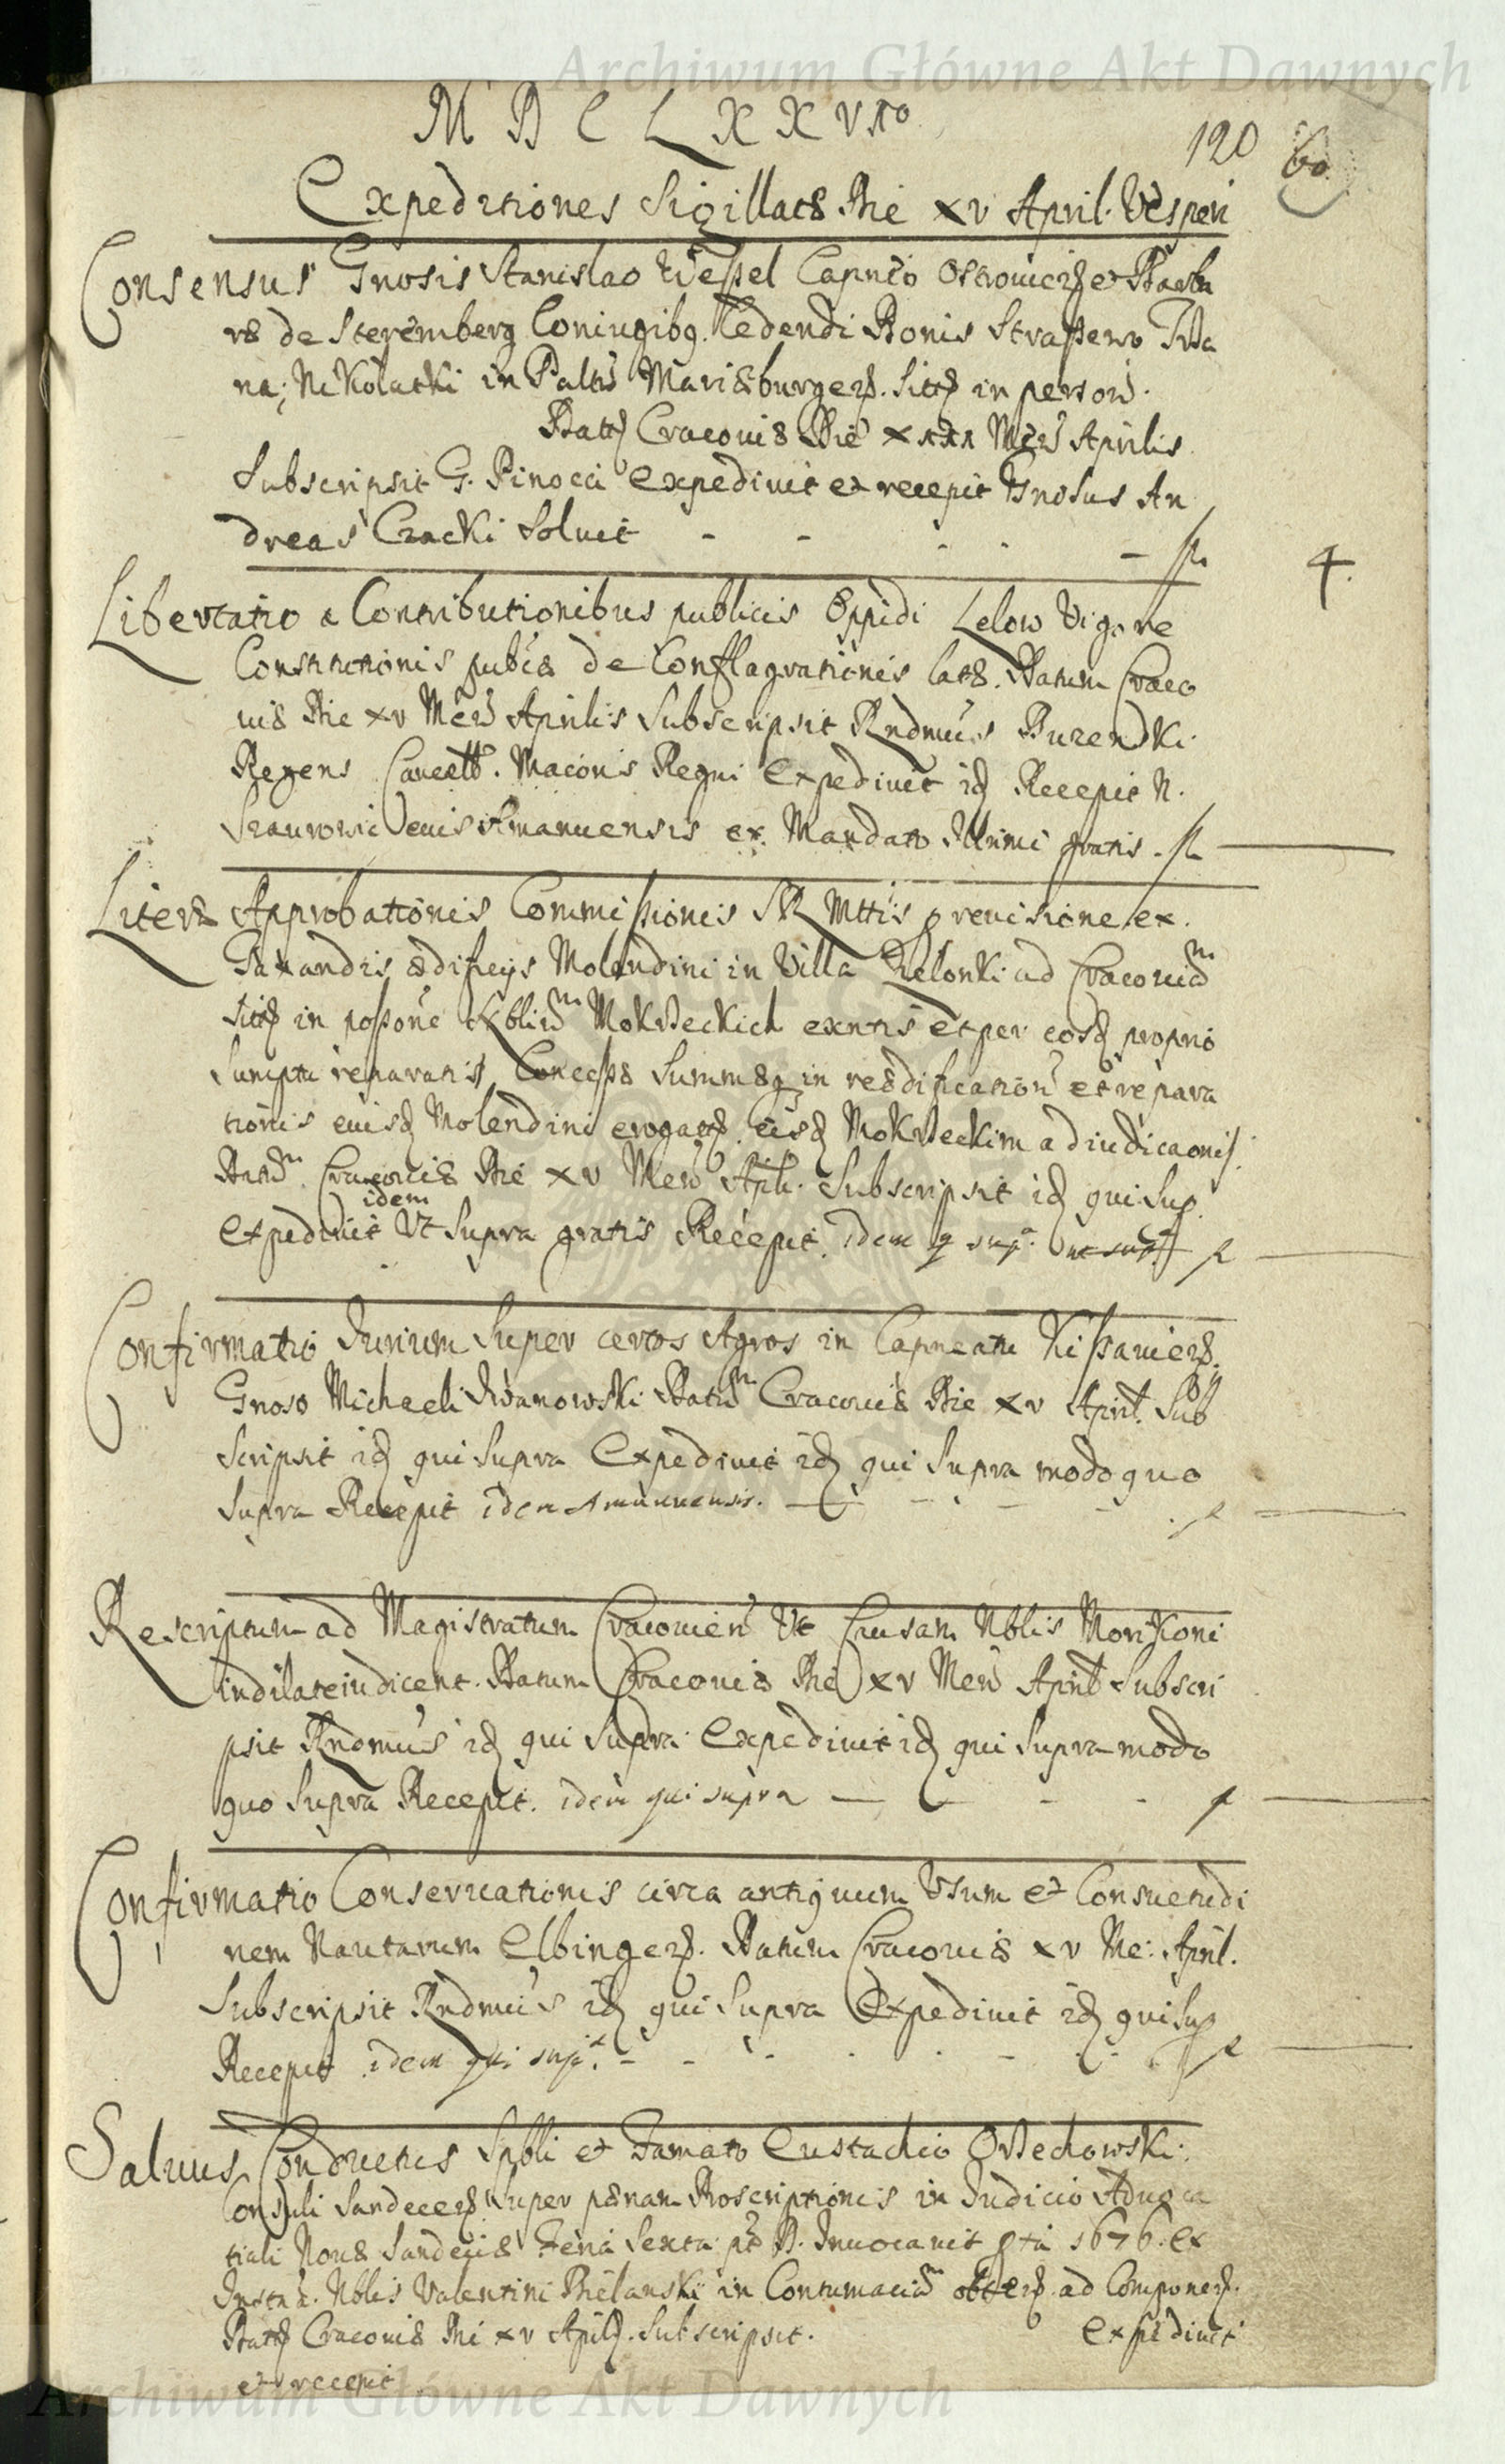 Archiwum Główne Akt Dawnych
M D C L X X VIto
120 60
Expeditiones Sigillatæ Die XV April. Vesperi
Consensus Gnosis Stanislao Wessel Capneo Ostrouien et Barba
ræ de Steremberg Coniugibq. Cedendi Bonis Straszewo
na; Nikolaiki in Paltu Mariæburgen. Sitis in person.
Datt Cracouiæ Die XIII Men Aprilis
Subscripsit G. Pinocci Expediuit et recepit Gnosus An
dreas Czacki Soluit - - - - - fl.
4.
Libertatio a Contributionibus publicis Oppidi Lelow Vigore
Constitutionis pubcæ de Conflagrationis latæ. Datum Craco
uiæ Die XV Men Aprilis Subscripsit Rndmus Buzendki
Regens Cancell. Maioris Regni Expediuit id Recepit N.
Amanuensis ex Mandato Illrmi gratis. fl
Literæ Approbationis Commissionis SR Mttis p reuisione ex
Taxandis ædificijs Molendini in Villa Zielonki ad Cracouiam
sitis in possone Nblium Mokrseckich exntis et per eosd proprio
Sumptu reparatis Concessæ Summæq in reædification et repara
tionis eiusd Molendini erogatæ eisd Mokrseckim adiudicaonis.
Datum Cracouiæ Die XV Men Aplis. Subscripsit id qui sup.
idem
Expediuit Vt Supra gratis Recepit idem q supa. ut supra fl
Confirmatio Jurium Super certos Agros in Capneatu Kiszauien.
Gnoso Michaeli Iwanowski Datum Cracouiæ Die XV April. Sub
scripsit id qui Supra Expediuit id qui Supra modo quo
Supra Recepit idem Amanuensis. - - - - fl
Rescriptum ad Magistratum Cracouien Vt Causam Nblis Morikoni
indilate iudicent. Datum Cracouiæ Die XV Men April Subscri
psit Rndmus id qui Supra Expediuit id qui Supra modo
quo Supra Recepit. idem qui supra - - - - fl
Confirmatio Conseruationis circa antiquum Vsum et Consuetudi
nem Nautarum Elbingen. Datum Cracouiæ XV Me: April.
Subscripsit Rndmus id qui Supra Expediuit id qui sup
Recepit idem qui supa. - - - - - fl
Saluus Conductus Spbli et Famato Eustachio Orzechowski
Consuli Sandecen Super pænam Proscriptionis in Judicio Aduoca
tiali Nouæ Sandeciæ Feria Sexta pt D. Inuocauit pta 1676. Ex
Insta. Nblis Valentini in Contumaciam obten. ad Componen.
Datt Cracouiæ Die XV April. Subscripsit. Expediuit
et recepit
Archiwum Główne Akt Dawnych